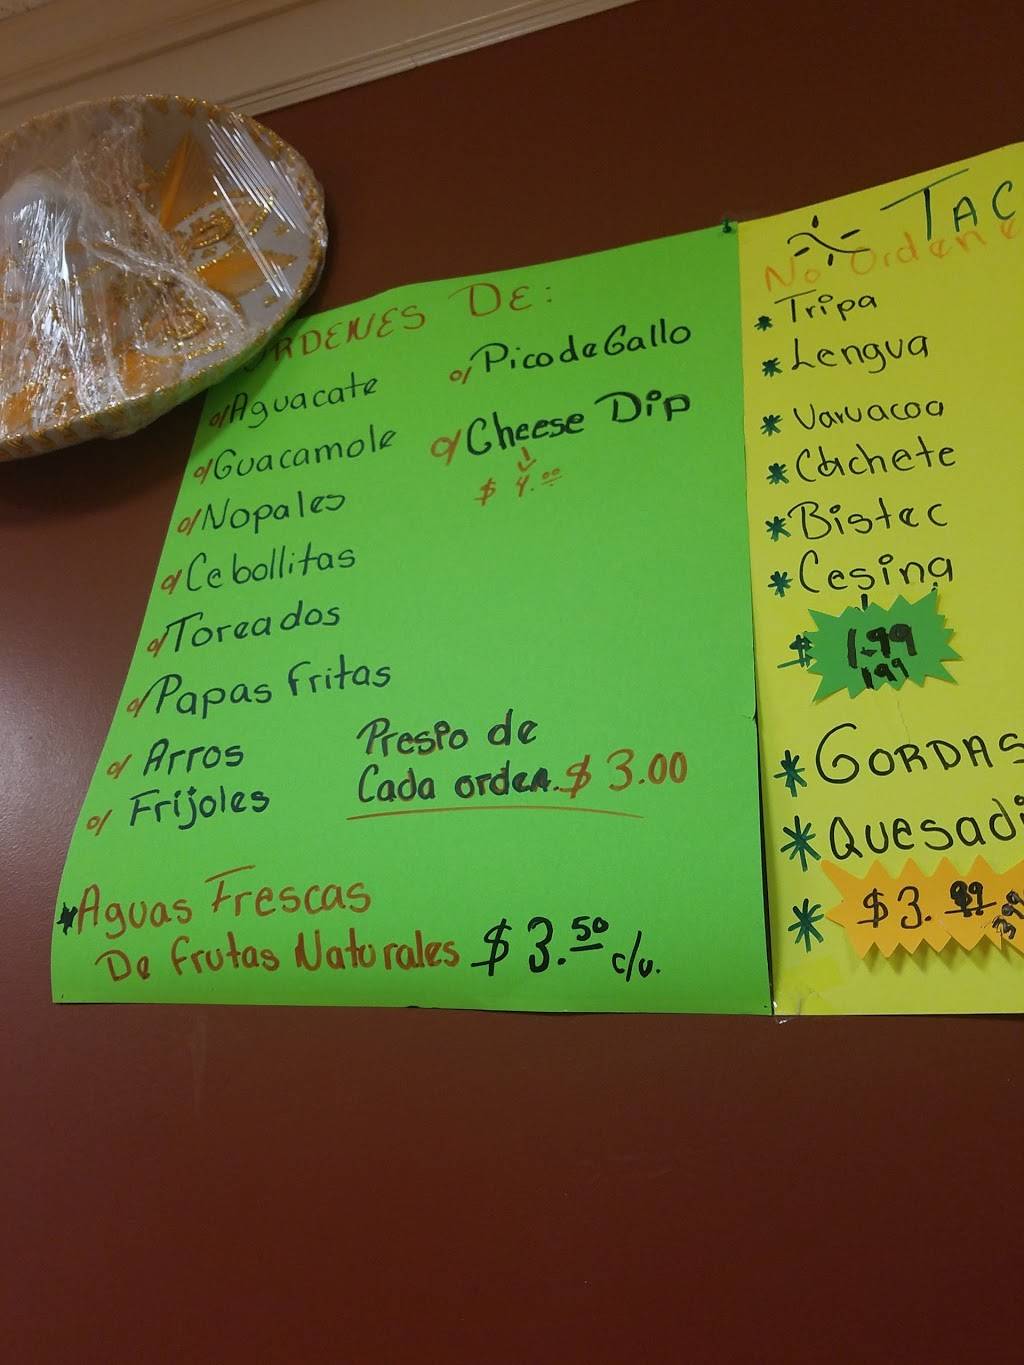 ORDENES DE:
o/Aguacate
o/Guacamole
o/Nopales
o/Cebollitas
o/Toreados
o/Papas fritas
o/ Arros
o/ Frijoles
o/Pico de Gallo
o/Cheese Dip
$ 4.00
Presio de
Cada orden. $ 3.00
*Aguas Frescas
De frutas Naturales $ 3.50 c/u.
TAC
No Ordene
* Tripa
* Lengua
* Varvacoa
* Cachete
* Bistec
* Cesina
$ 1.99
1.99
* GORDAS
* Quesadi
* $ 3.99
3.99